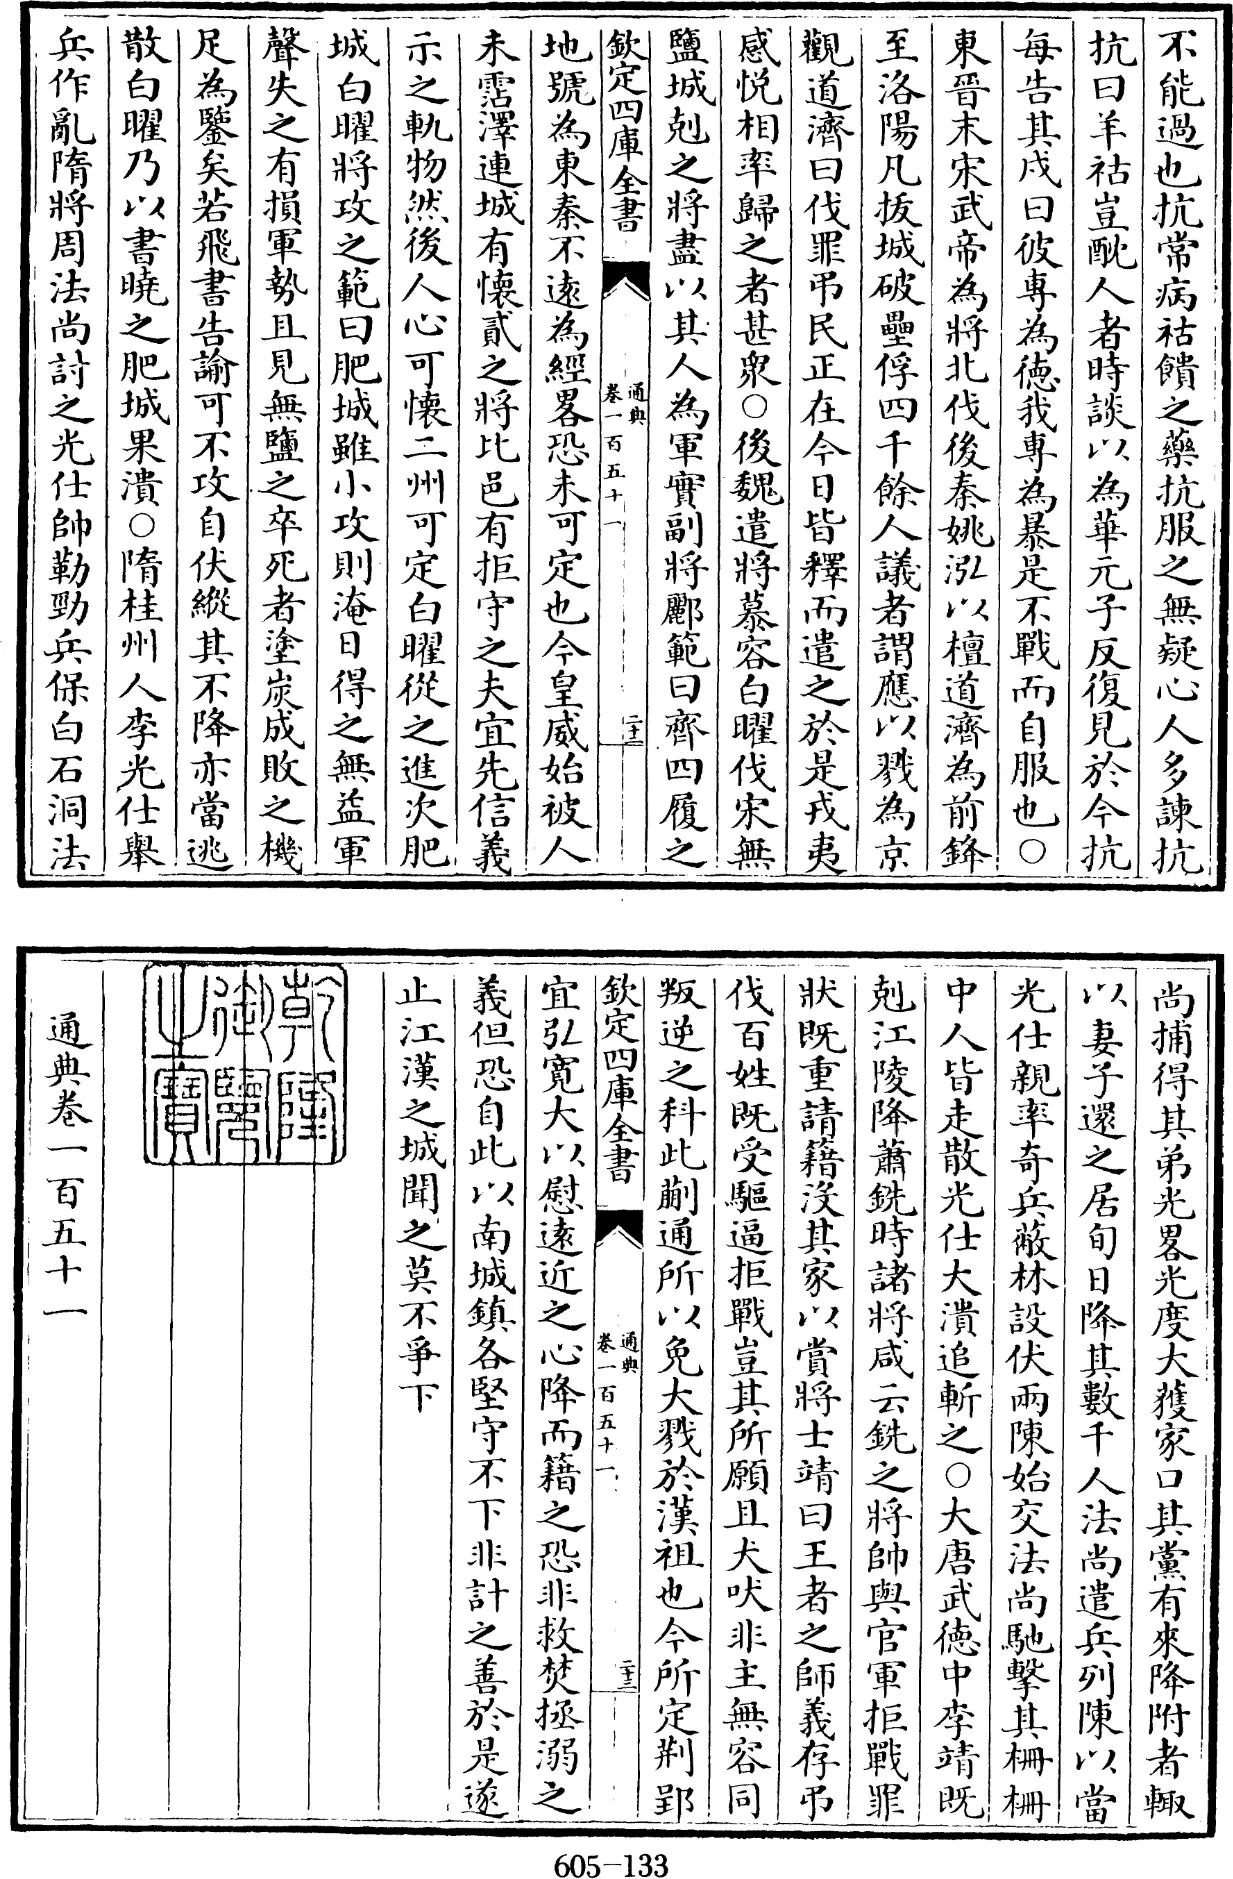 不能過也抗常病祜饋之藥抗服之無疑心人多諫抗
抗曰羊祜豈酖人者時談以為華元子反復見於今抗
每告其戍曰彼專為德我專為暴是不戰而自服也○
東晉末宋武帝為將北伐後秦姚泓以檀道濟為前鋒
至洛陽凡拔城破壘俘四千餘人議者謂應以戮為京
觀道濟曰伐罪弔民正在今日皆釋而遣之於是戎夷
感悅相率歸之者甚衆○後魏遣將慕容白曜伐宋無
鹽城剋之將盡以其人為軍實副將酈範曰齊四履之
欽定四庫全書
通典
卷一百五十一
二十二
地號為東秦不遠為經畧恐未可定也今皇威始被人
未霑澤連城有懷貳之將比邑有拒守之夫宜先信義
示之軌物然後人心可懷二州可定白曜從之進次肥
城白曜將攻之範曰肥城雖小攻則淹日得之無益軍
聲失之有損軍勢且見無鹽之卒死者塗炭成敗之機
足為鑒矣若飛書告諭可不攻自伏縱其不降亦當逃
散白曜乃以書曉之肥城果潰○隋桂州人李光仕舉
兵作亂隋將周法尚討之光仕帥勒勁兵保白石洞法
尚捕得其弟光畧光度大獲家口其黨有來降附者輙
以妻子還之居旬日降其數千人法尚遣兵列陳以當
光仕親率奇兵蔽林設伏兩陳始交法尚馳擊其柵柵
中人皆走散光仕大潰追斬之○大唐武德中李靖既
剋江陵降蕭銑時諸將咸云銑之將帥與官軍拒戰罪
狀既重請籍沒其家以賞將士靖曰王者之師義存弔
伐百姓既受驅逼拒戰豈其所願且犬吠非主無容同
叛逆之科此蒯通所以免大戮於漢祖也今所定荆郢
欽定四庫全書
通典
卷一百五十一
二十三
宜弘寬大以慰遠近之心降而籍之恐非救焚拯溺之
義但恐自此以南城鎮各堅守不下非計之善於是遂
止江漢之城聞之莫不爭下
乾隆
御覽
之寶
通典卷一百五十一
605-133